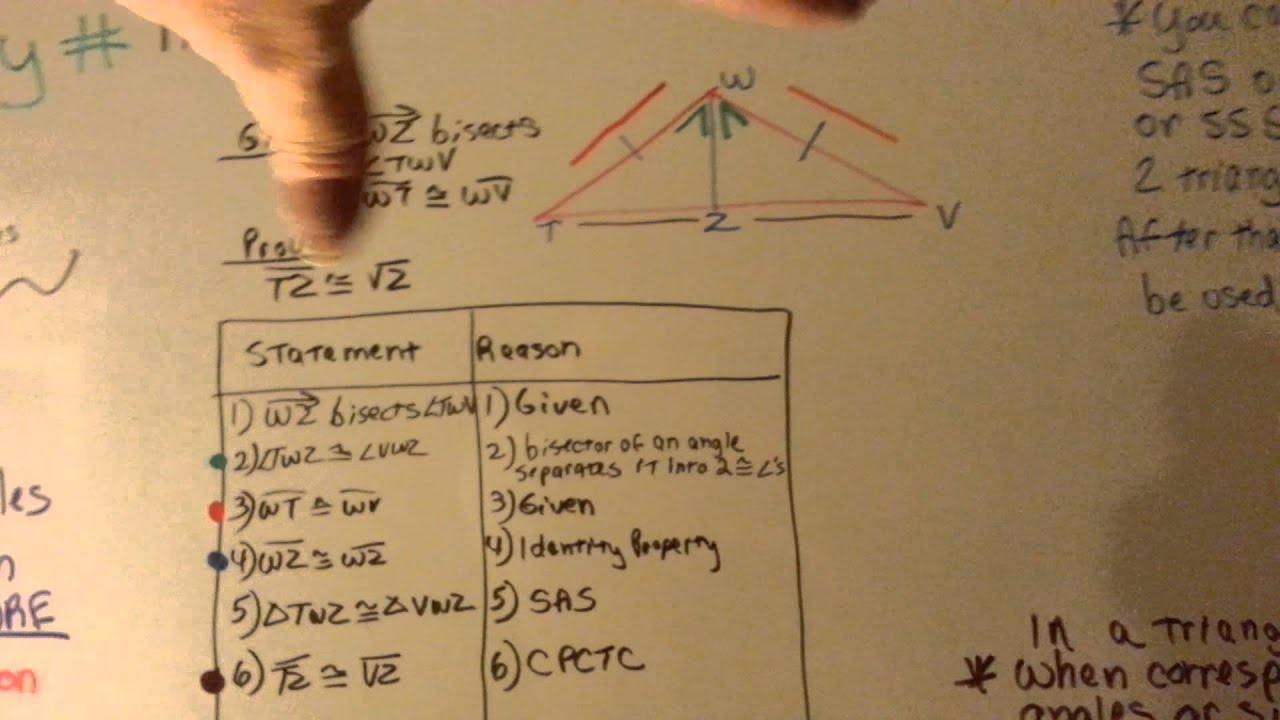 y #
WZ bisects
∠TWV
WT ≅ WV
TZ ≅ VZ
W
T Z V
Statement Reason
1) WZ bisects ∠TWV 1) Given
2) ∠TWZ ≅ ∠VWZ 2) bisector of an angle
separates it into 2 ≅ ∠'s
3) WT ≅ WV 3) Given
4) WZ ≅ WZ 4) Identity Property
5) △TWZ ≅ △VWZ 5) SAS
6) TZ ≅ VZ 6) CPCTC
* You
SAS
or SSS
2 triang
After tha
be used
les
n
ORE
on
In a Triang
* when corresp
angles or